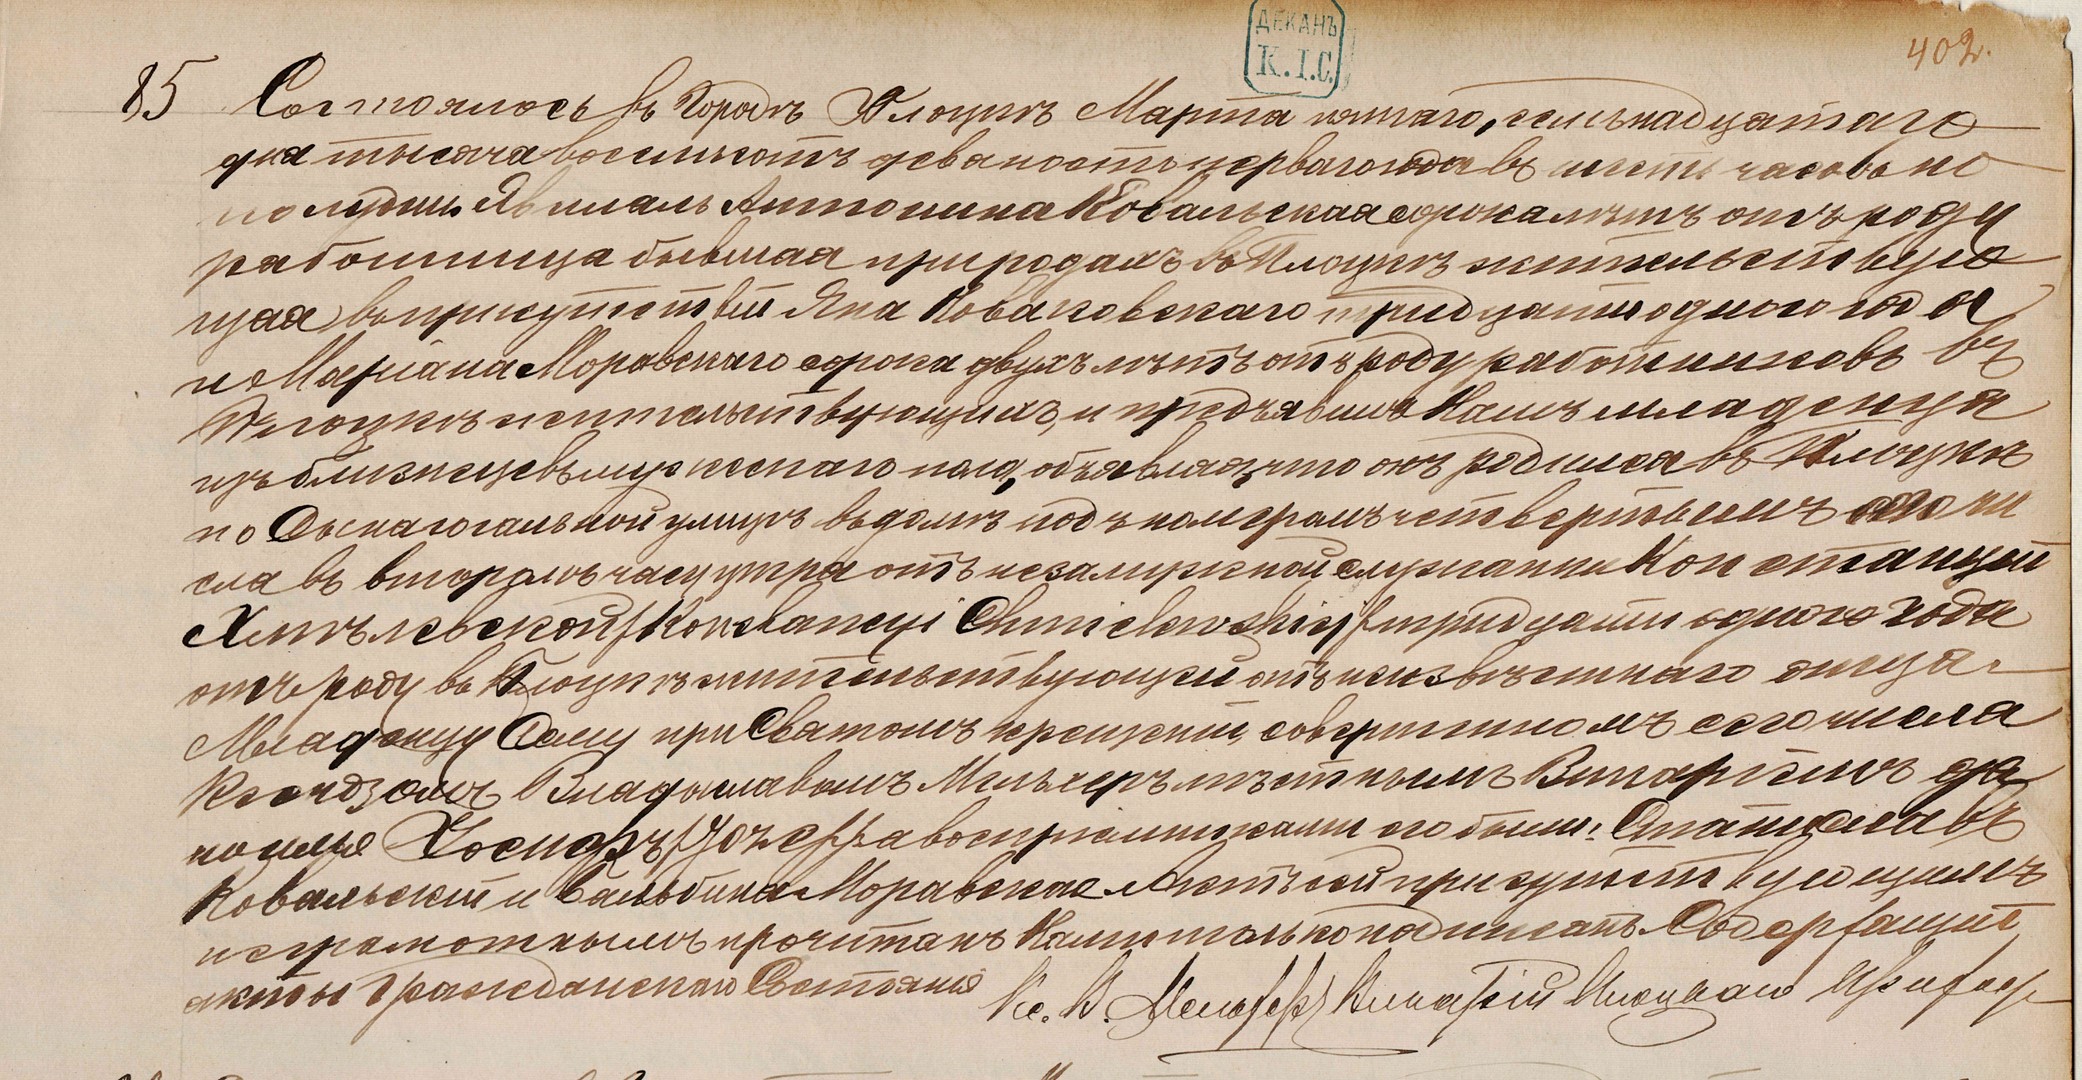 ДЕКАНЪ
К.І.С.
402.
85 Состоялось въ Городѣ Плоцкѣ Марта пятаго, семьнадцатаго
дня тысяча восемьсотъ девяностопервагогода въ шесть часовъ по
полудни. Явилась Антонина Ковальская сорока лѣтъ отъ роду
работница бывшая при родахъ въ Плоцкѣ жительствую
щая въ присутствіи Яна Коваковскаго тридцати одного года
и Маріана Моравскаго сорока двухъ лѣтъ отъ роду работниковъ въ
Плоцкѣ жительствующихъ, и предъявила Намъ младенца
изъ близнецевъ мужескаго пола, объявляя, что онъ родился въ Плоцкѣ
по Сынагогальной улицѣ въ домѣ подъ номеромъ четвертымъ сего чи
сла въ второмъ часу утра отъ незамужной служанки Констанціи
Хмѣлевской /Konstancyi Chmielewskiej/ тридцати одного года
отъ роду въ Плоцкѣ жительствующей отъ неизвѣстнаго отца.
Младенцу Сему при Святомъ крещеніи, совершенномъ сего числа
Ксендзомъ Владиславомъ Мельхеръ мѣстнымъ Викаріемъ да
но имя Іосифъ /Józef/ а воспріемниками его были: Станиславъ
Ковальскій и Бальбина Моравская. Актъ сей присутствующимъ
неграмотнымъ прочитанъ Нами только подписанъ. Содержащій
акты Гражданскаго Состоянія
Кс. В. Мельхеръ Викарій Плоцкаго Прихода